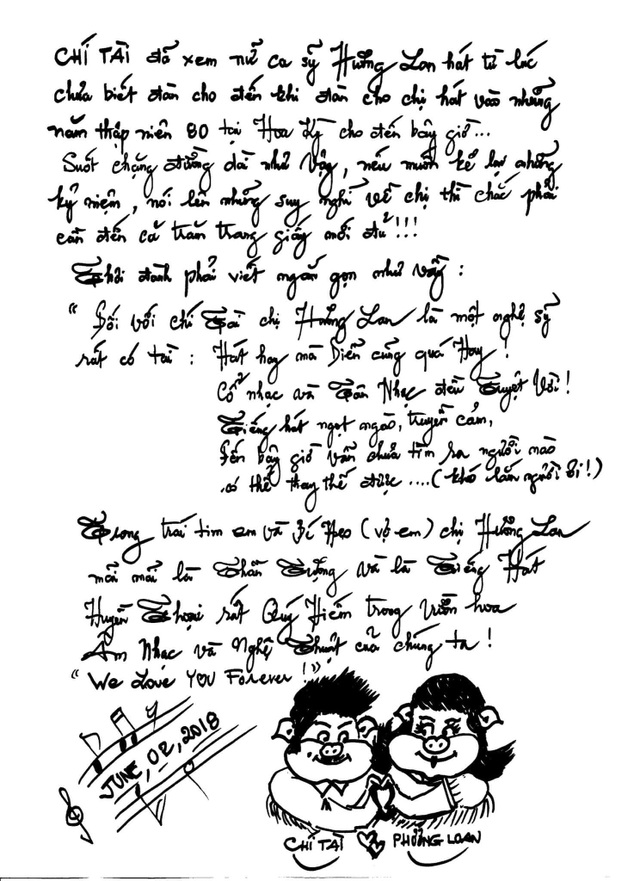 CHÍ TÀI đã xem nữ ca sỹ Hương Lan hát từ lúc
chưa biết đàn cho đến khi đàn cho chị hát vào những
năm thập niên 80 tại Hoa Kỳ cho đến bây giờ...
Suốt chặng đường dài như vậy, nếu muốn kể lại những
kỷ niệm, nói lên những suy nghĩ về chị thì chắc phải
cần đến cả trăm trang giấy mới đủ!!!
Thôi đành phải viết ngắn gọn như vầy:
"Đối với chí Tài chị Hương Lan là một nghệ sỹ
rất có tài: Hát hay mà Diễn cũng quá Hay!
Cổ nhạc và Tân Nhạc đều Tuyệt Vời!
Tiếng hát ngọt ngào, truyền cảm,
Đến bây giờ vẫn chưa tìm ra người nào
có thể thay thế được ....(khó lắm người ơi!)
Trong trái tim em và Bé Heo (vợ em) chị Hương Lan
mãi mãi là Thần Tượng và là Tiếng Hát
Huyền Thoại rất Quý Hiếm trong vườn hoa
Âm Nhạc và Nghệ Thuật của chúng ta!
"We Love YOU Forever!"»
JUNE, 02, 2018
CHÍ TÀI PHƯƠNG LOAN